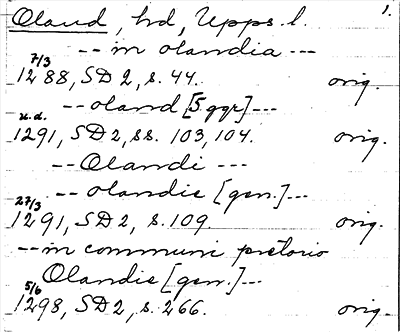 Oland, hd, Upps. l. 1.
-- in olandia ---
7/3
1288, SD 2, s. 44. orig.
-- oland [5 ggr] ---
u.d.
1291, SD 2, ss. 103, 104. orig.
-- Olandi ---
-- olandie [gen.] ---
27/3
1291, SD 2, s. 109. orig.
-- in communi pretorio
Olandie [gen.] ---
5/6
1298, SD 2, s. 266. orig.